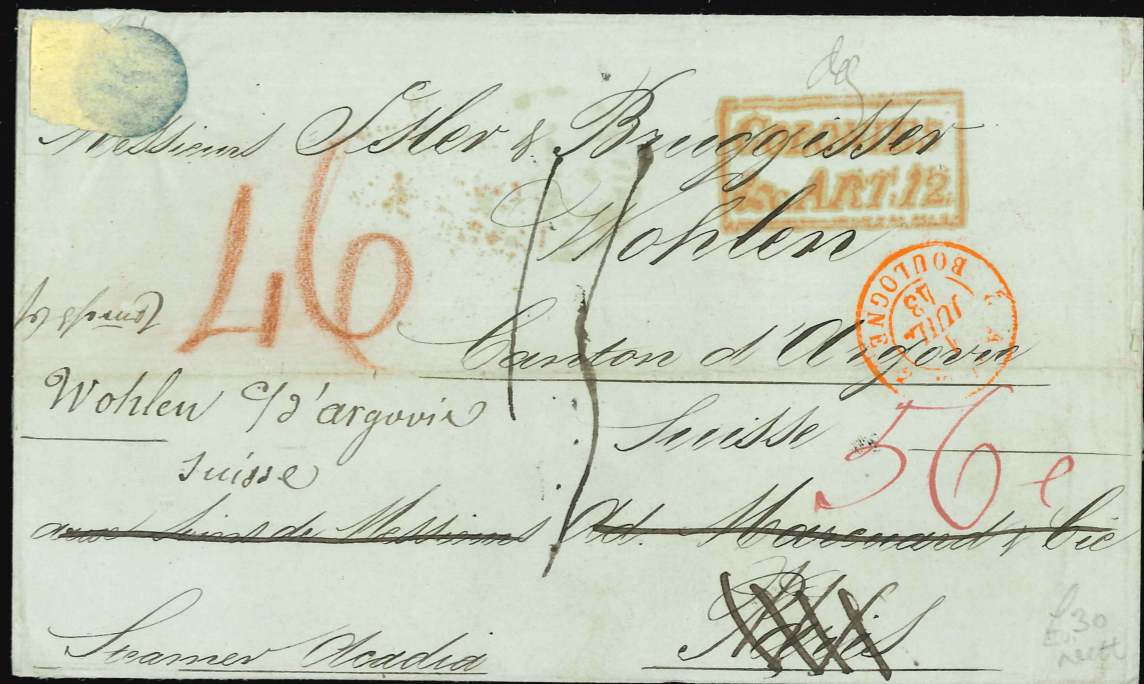 Messieurs Isler & Bruggisser
COLONIES
&c. ART. 12.
Wohlen
46
BOULOGNE
1
JUIL
43
Canton d'Argovie
Wohlen c/d'argovie
Suisse
56 c
suisse
aux soins de Messieurs Ad. Marcuard & Cie
Paris
Steamer Acadia
£30